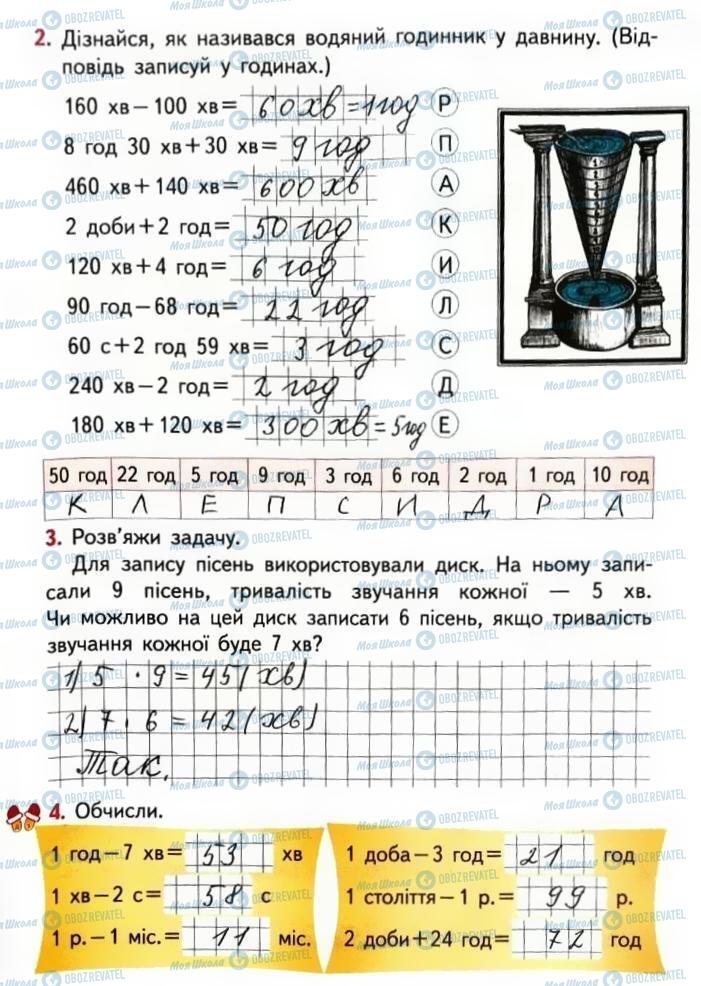 2. Дізнайся, як називався водяний годинник у давнину. (Від-
повідь записуй у годинах.)
160 хв − 100 хв = 60 хв = 1 год Р
8 год 30 хв + 30 хв = 9 год П
460 хв + 140 хв = 600 хв А
2 доби + 2 год = 50 год К
120 хв + 4 год = 6 год И
90 год − 68 год = 22 год Л
60 с + 2 год 59 хв = 3 год С
240 хв − 2 год = 2 год Д
180 хв + 120 хв = 300 хв = 5 год Е
50 год 22 год 5 год 9 год 3 год 6 год 2 год 1 год 10 год
К Л Е П С И Д Р А
3. Розв'яжи задачу.
Для запису пісень використовували диск. На ньому запи-
сали 9 пісень, тривалість звучання кожної — 5 хв.
Чи можливо на цей диск записати 6 пісень, якщо тривалість
звучання кожної буде 7 хв?
1) 5 · 9 = 45 (хв)
2) 7 · 6 = 42 (хв)
Так.
4. Обчисли.
1 год − 7 хв = 53 хв 1 доба − 3 год = 21 год
1 хв − 2 с = 58 с 1 століття − 1 р. = 99 р.
1 р. − 1 міс. = 11 міс. 2 доби + 24 год = 72 год
Моя Школа OBOZREVATEL